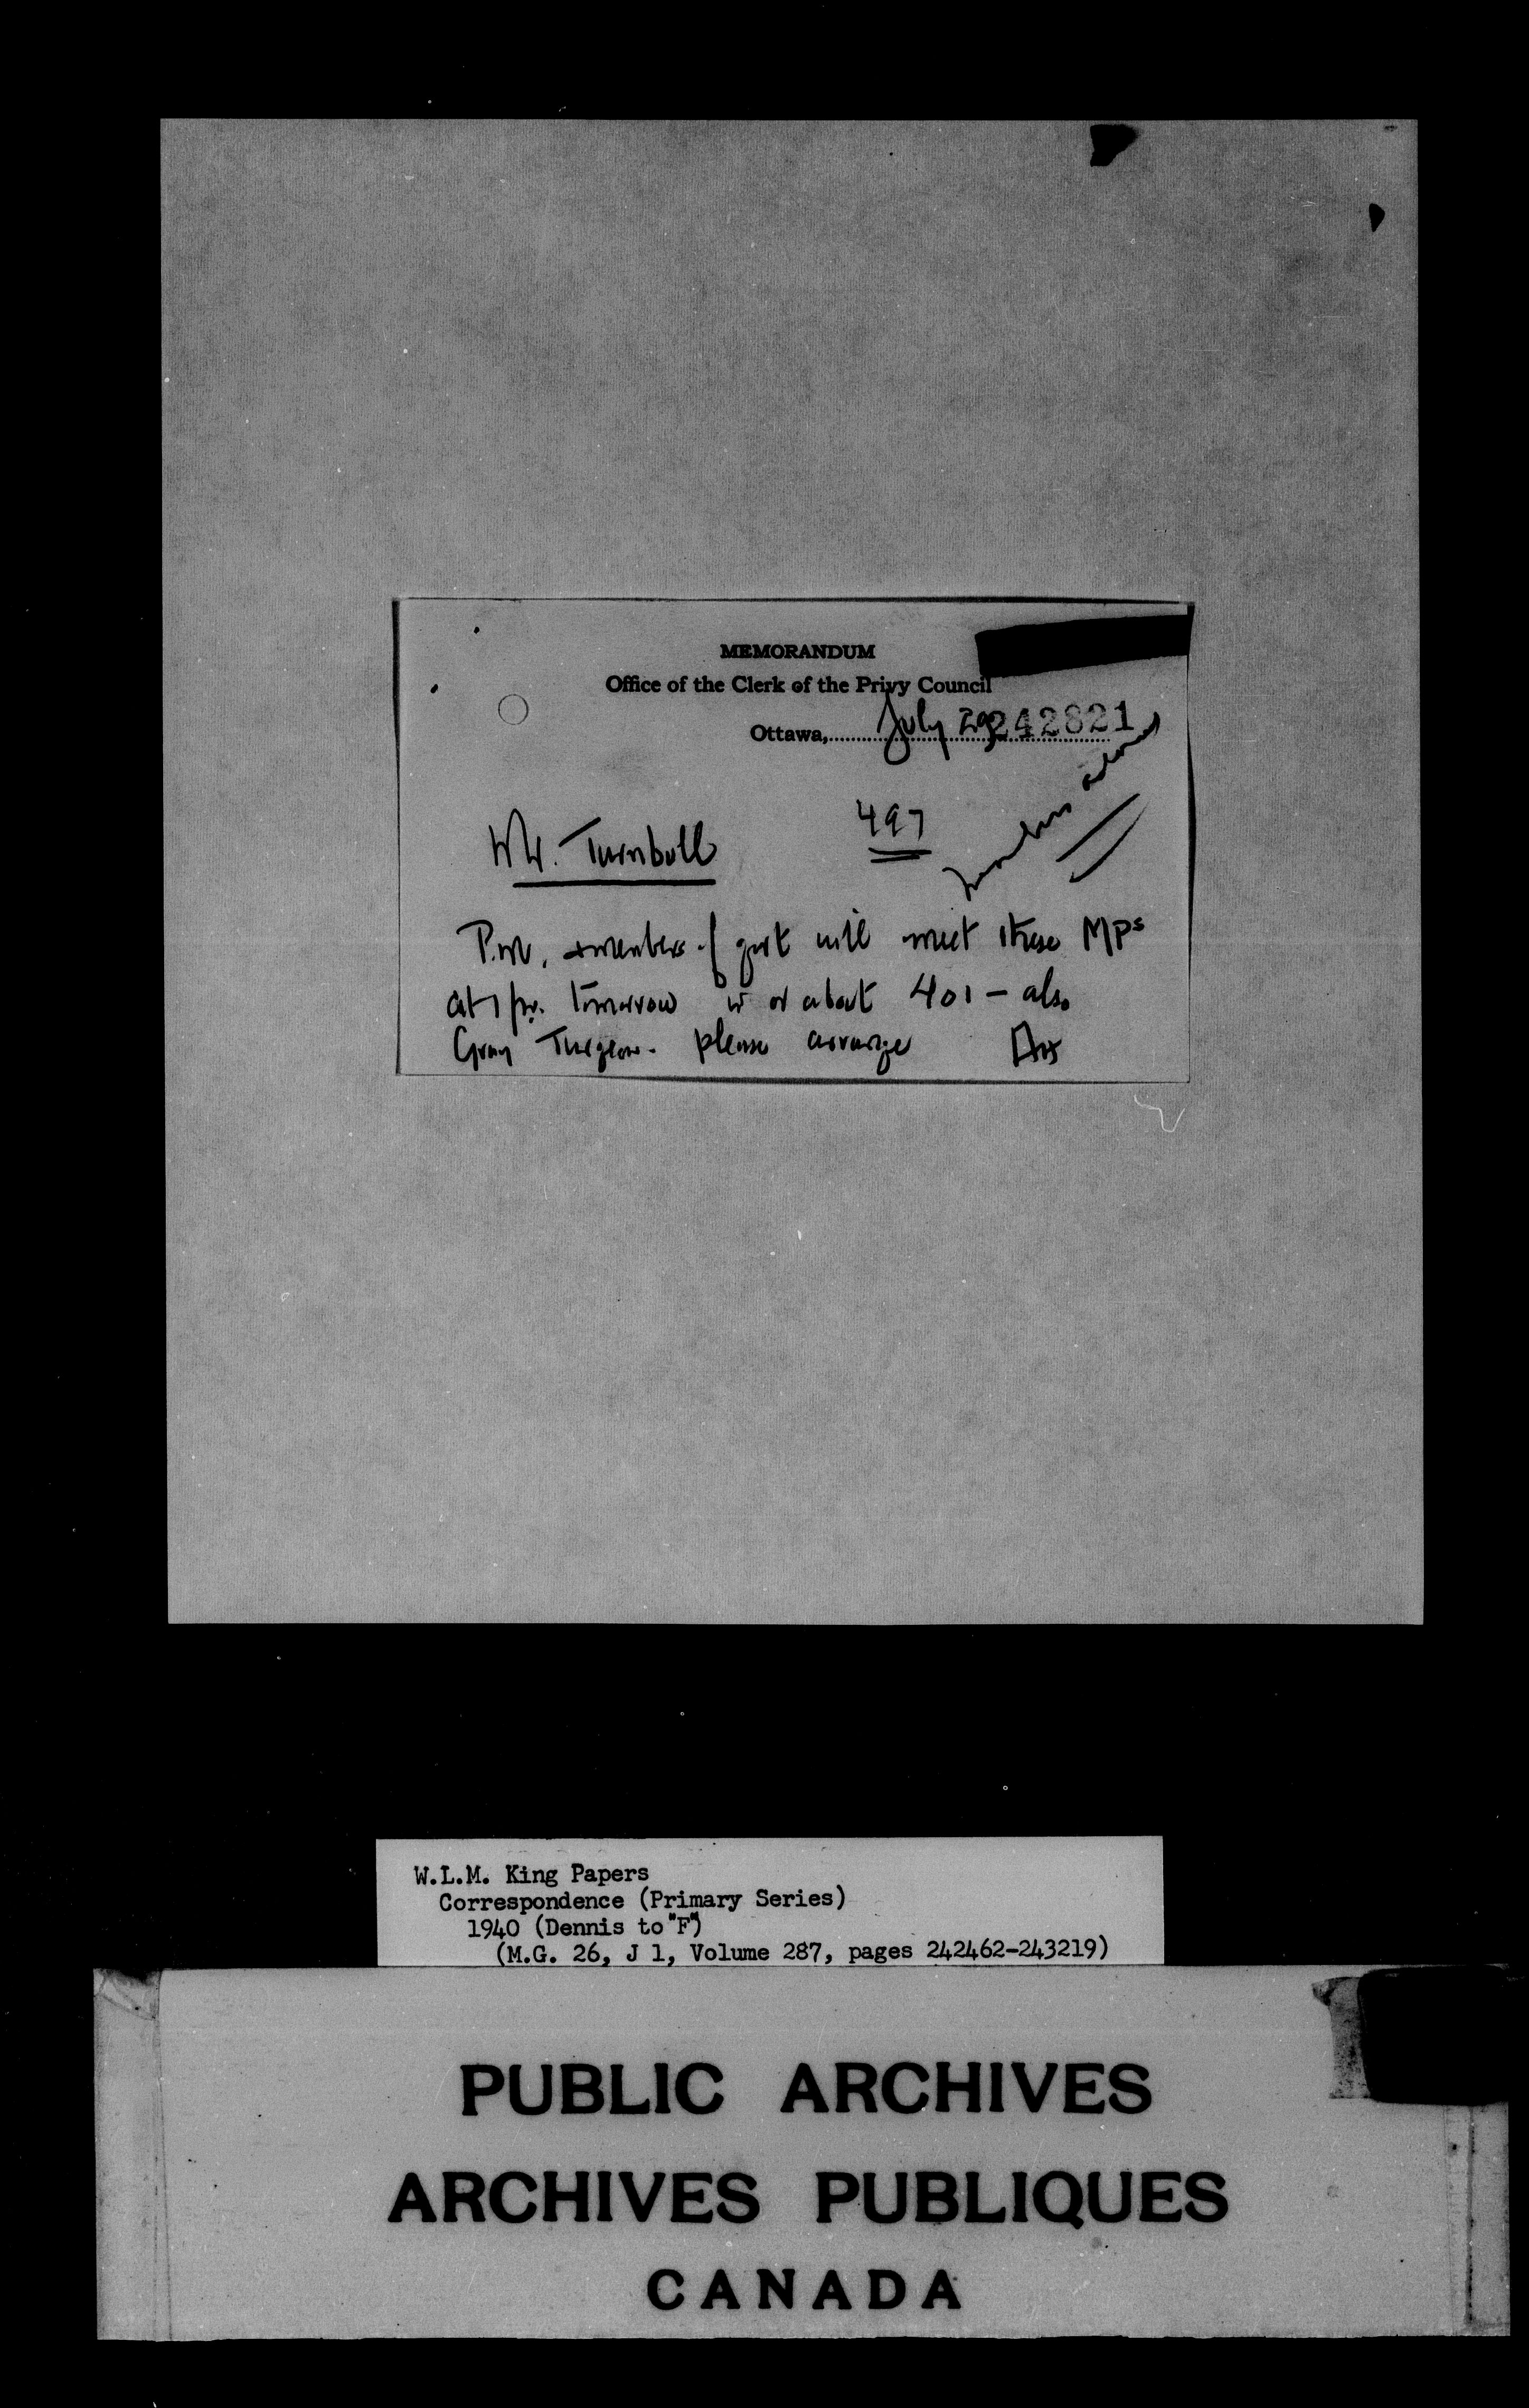 MEMORANDUM
Office of the Clerk of the Privy Council
Ottawa, July 29
242821
497
Mr. Turnbull
P.M. & members of govt will meet these MPs
at 1 p.m. tomorrow in or about 401 - also
Gray Turgeon. please arrange
W.L.M. King Papers
Correspondence (Primary Series)
1940 (Dennis to "F")
(M.G. 26, J 1, Volume 287, pages 242462-243219)
PUBLIC ARCHIVES
ARCHIVES PUBLIQUES
CANADA